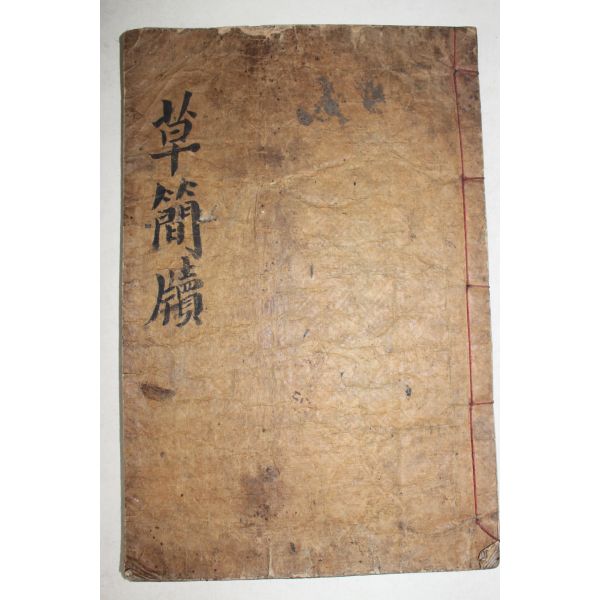 草簡牘